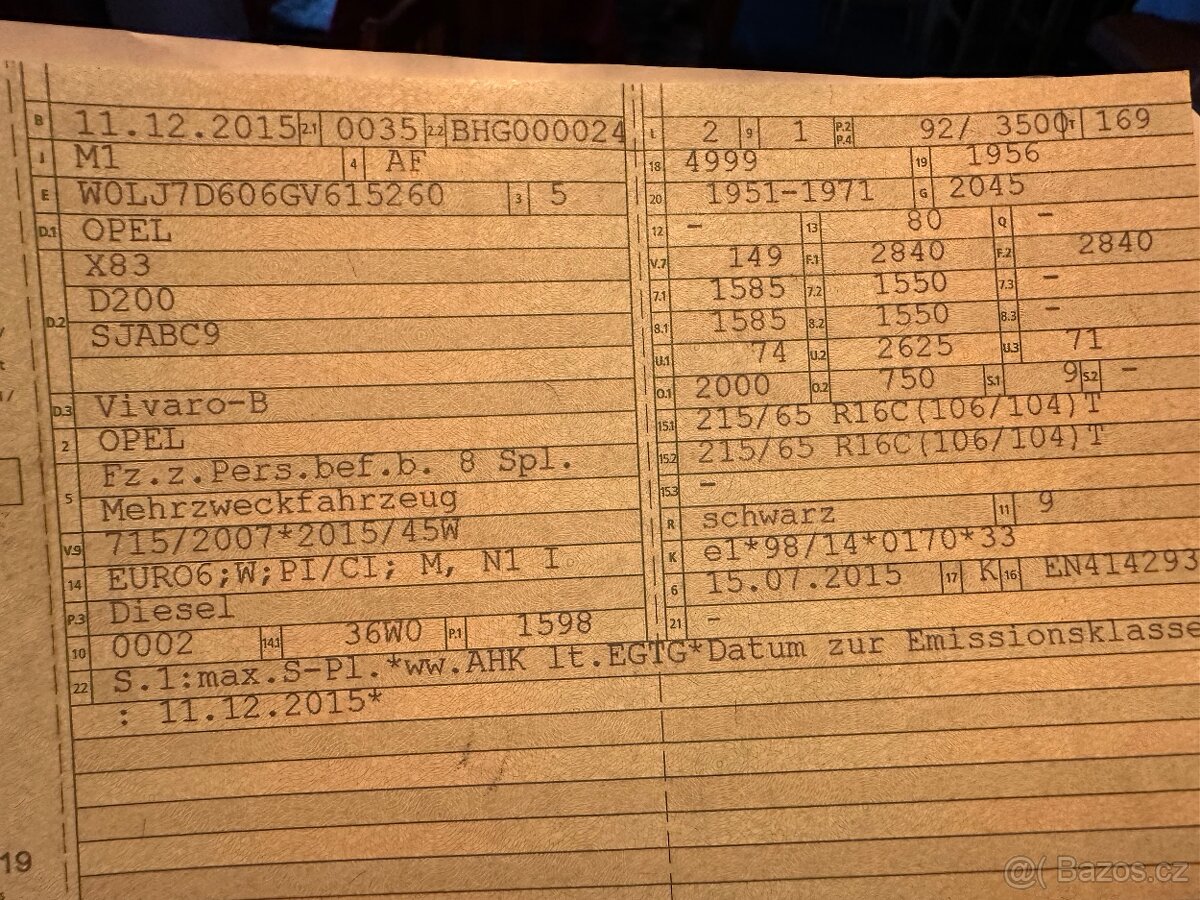 B 11.12.2015 2.1 0035 2.2 BHG000024
J M1 4 AF
E W0LJ7D606GV615260 3 5
D.1 OPEL
D.2 X83
D200
SJABC9
D.3 Vivaro-B
2 OPEL
5 Fz.z.Pers.bef.b. 8 Spl.
Mehrzweckfahrzeug
V.9 715/2007*2015/45W
14 EURO6;W;PI/CI; M, N1 I
P.3 Diesel
10 0002 14.1 36W0 P.1 1598
L 2 9 1 P.2 P.4 92/ 3500 T 169
18 4999 19 1956
20 1951-1971 G 2045
12 - 13 80 Q -
V.7 149 F.1 2840 F.2 2840
7.1 1585 7.2 1550 7.3 -
8.1 1585 8.2 1550 8.3 -
U.1 74 U.2 2625 U.3 71
O.1 2000 O.2 750 S.1 9 S.2 -
15.1 215/65 R16C(106/104)T
15.2 215/65 R16C(106/104)T
15.3 -
R schwarz 11 9
K e1*98/14*0170*33
6 15.07.2015 17 K 16 EN414293
21 -
22 S.1:max.S-Pl.*ww.AHK lt.EGTG*Datum zur Emissionsklasse
: 11.12.2015*
19
@( Bazos.cz